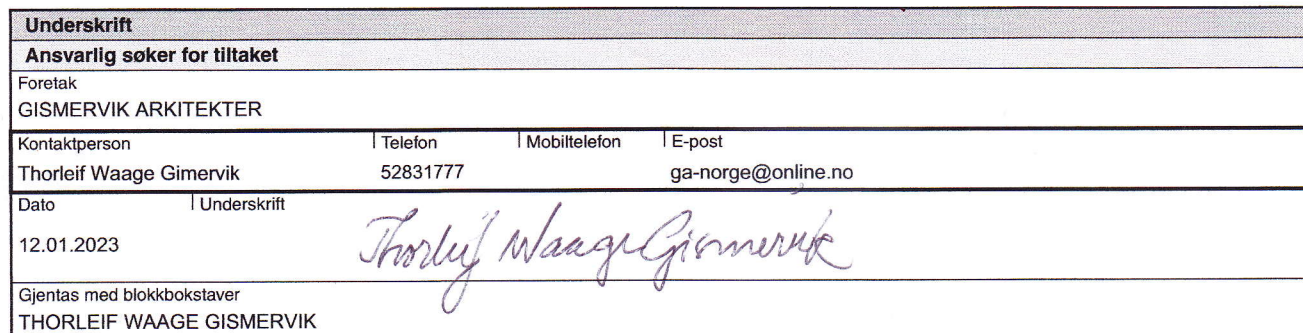 Underskrift
Ansvarlig søker for tiltaket
Foretak
GISMERVIK ARKITEKTER
Kontaktperson Telefon Mobiltelefon E-post
Thorleif Waage Gimervik 52831777 ga-norge@online.no
Dato Underskrift
12.01.2023 Thorleif Waage Gismervik
Gjentas med blokkbokstaver
THORLEIF WAAGE GISMERVIK